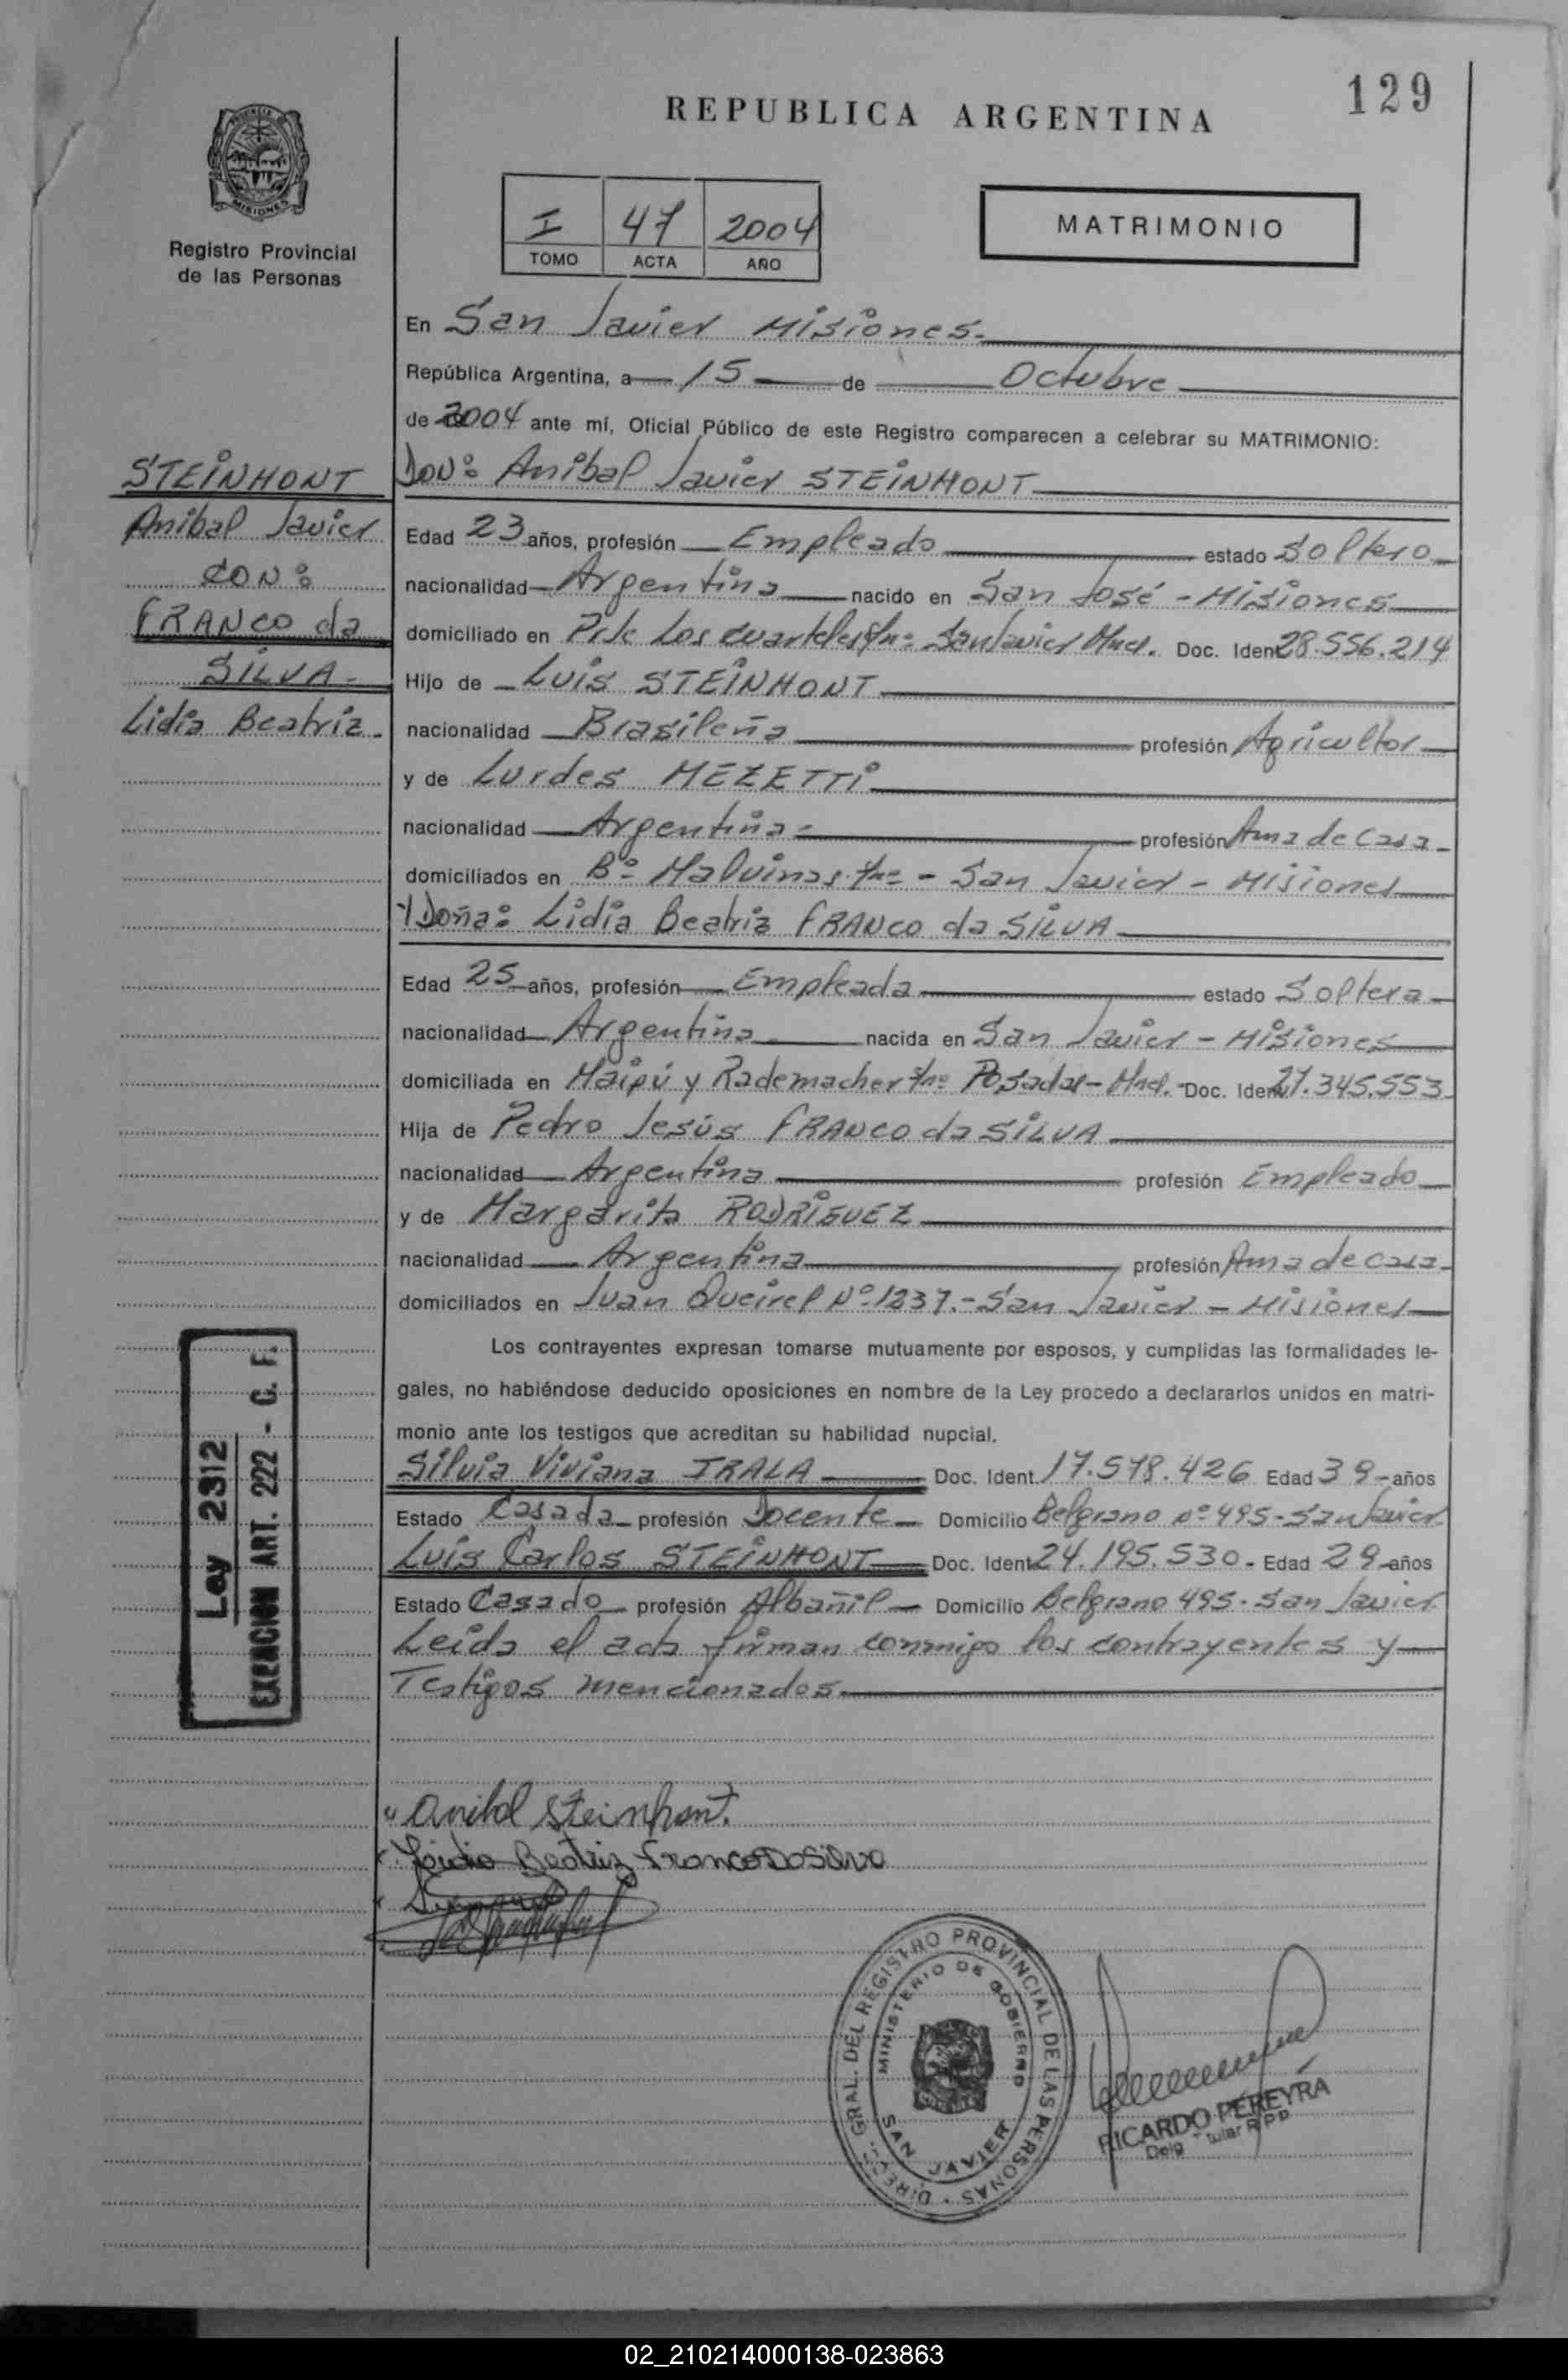 129
REPUBLICA ARGENTINA
PROVINCIA
MISIONES
Registro Provincial
de las Personas
I 47 2004
TOMO ACTA AÑO
MATRIMONIO
En San Javier Misiones.
República Argentina, a 15 de Octubre
de 2004 ante mí, Oficial Público de este Registro comparecen a celebrar su MATRIMONIO:
STEiNHONT
Anibal Javier
CON:
FRANCO da
SILVA.
Lidia Beatriz.
Don: Anibal Javier STEiNHONT
Edad 23 años, profesión Empleado estado Soltero
nacionalidad Argentina nacido en San José - Misiones
domiciliado en Pje Los Cuarteles San Javier Mnes. Doc. Iden 28.556.214
Hijo de Luis STEiNHONT
nacionalidad Brasileña profesión Agricultor
y de Lurdes MEZETTi
nacionalidad Argentina profesión Ama de Casa
domiciliados en Bº Malvinas - San Javier - Misiones
Y Doña: Lidia Beatriz FRANCO da SiLVA
Edad 25 años, profesión Empleada estado Soltera
nacionalidad Argentina nacida en San Javier - Misiones
domiciliada en Maipú y Rademacher Posadas - Mnes. Doc. Iden 27.345.553
Hija de Pedro Jesús FRANCO da SiLVA
nacionalidad Argentina profesión Empleado
y de Margarita RODRiGUEZ
nacionalidad Argentina profesión Ama de casa
domiciliados en Juan Queirel Nº 1237.- San Javier - Misiones
Los contrayentes expresan tomarse mutuamente por esposos, y cumplidas las formalidades le-
gales, no habiéndose deducido oposiciones en nombre de la Ley procedo a declararlos unidos en matri-
monio ante los testigos que acreditan su habilidad nupcial.
Silvia Viviana IRALA Doc. Ident. 17.578.426 Edad 39 años
Estado Casada profesión Docente Domicilio Belgrano nº 495 - San Javier
Luis Carlos STEiNHONT Doc. Ident. 24.195.530 - Edad 29 años
Estado Casado profesión Albañil Domicilio Belgrano 495 - San Javier
Leida el acta firman conmigo los contrayentes y
Testigos mencionados.
Ley 2312
EXENCION ART. 222 - C. F.
Anibal Steinhont.
Lidia Beatriz Franco Da Silva
DIRECC. GRAL. DEL REGISTRO PROVINCIAL DE LAS PERSONAS
MINISTERIO DE GOBIERNO
SAN JAVIER
RICARDO PEREYRA
02_210214000138-023863